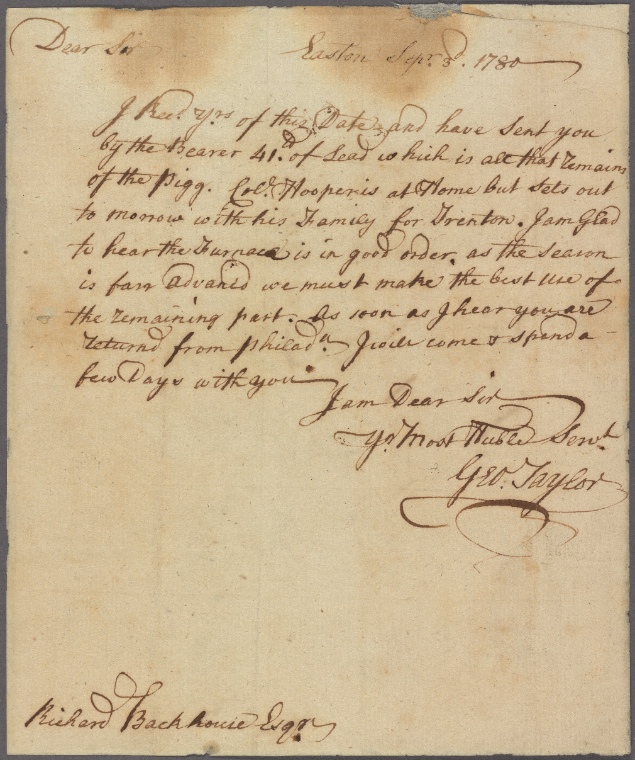 Dear Sir Easton Sepr. 3d. 1780
I Recd. yrs of this Date, and have sent you
by the Bearer 41.lb of Lead which is all that remains
of the Pigg. Colo. Hooper is at Home but sets out
to morrow with his Family for Trenton. I am Glad
to hear the Furnace is in good order, as the season
is farr advancd we must make the best use of
the remaining part. As soon as I hear you are
returnd from Philada. I will come & spend a
few Days with you
I am Dear Sir
Yr. Most Huble Servt
Geo. Taylor
Richard Backhouse Esqr.